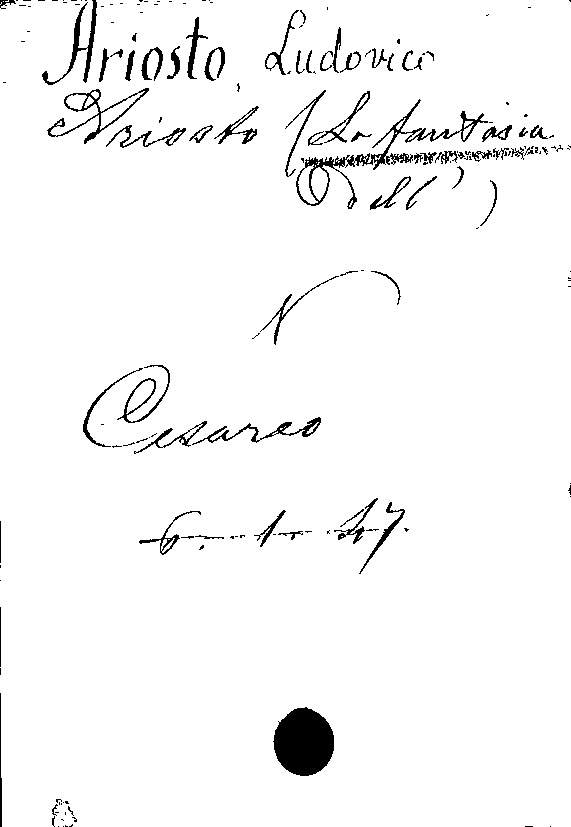 Ariosto, Ludovico
Ariosto (La fantasia
Dell')
V
Cesareo
6. 1. 47.